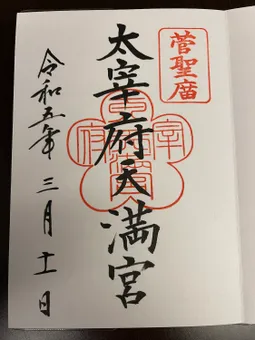 菅聖庿
太宰府天満宮
令和五年三月十一日